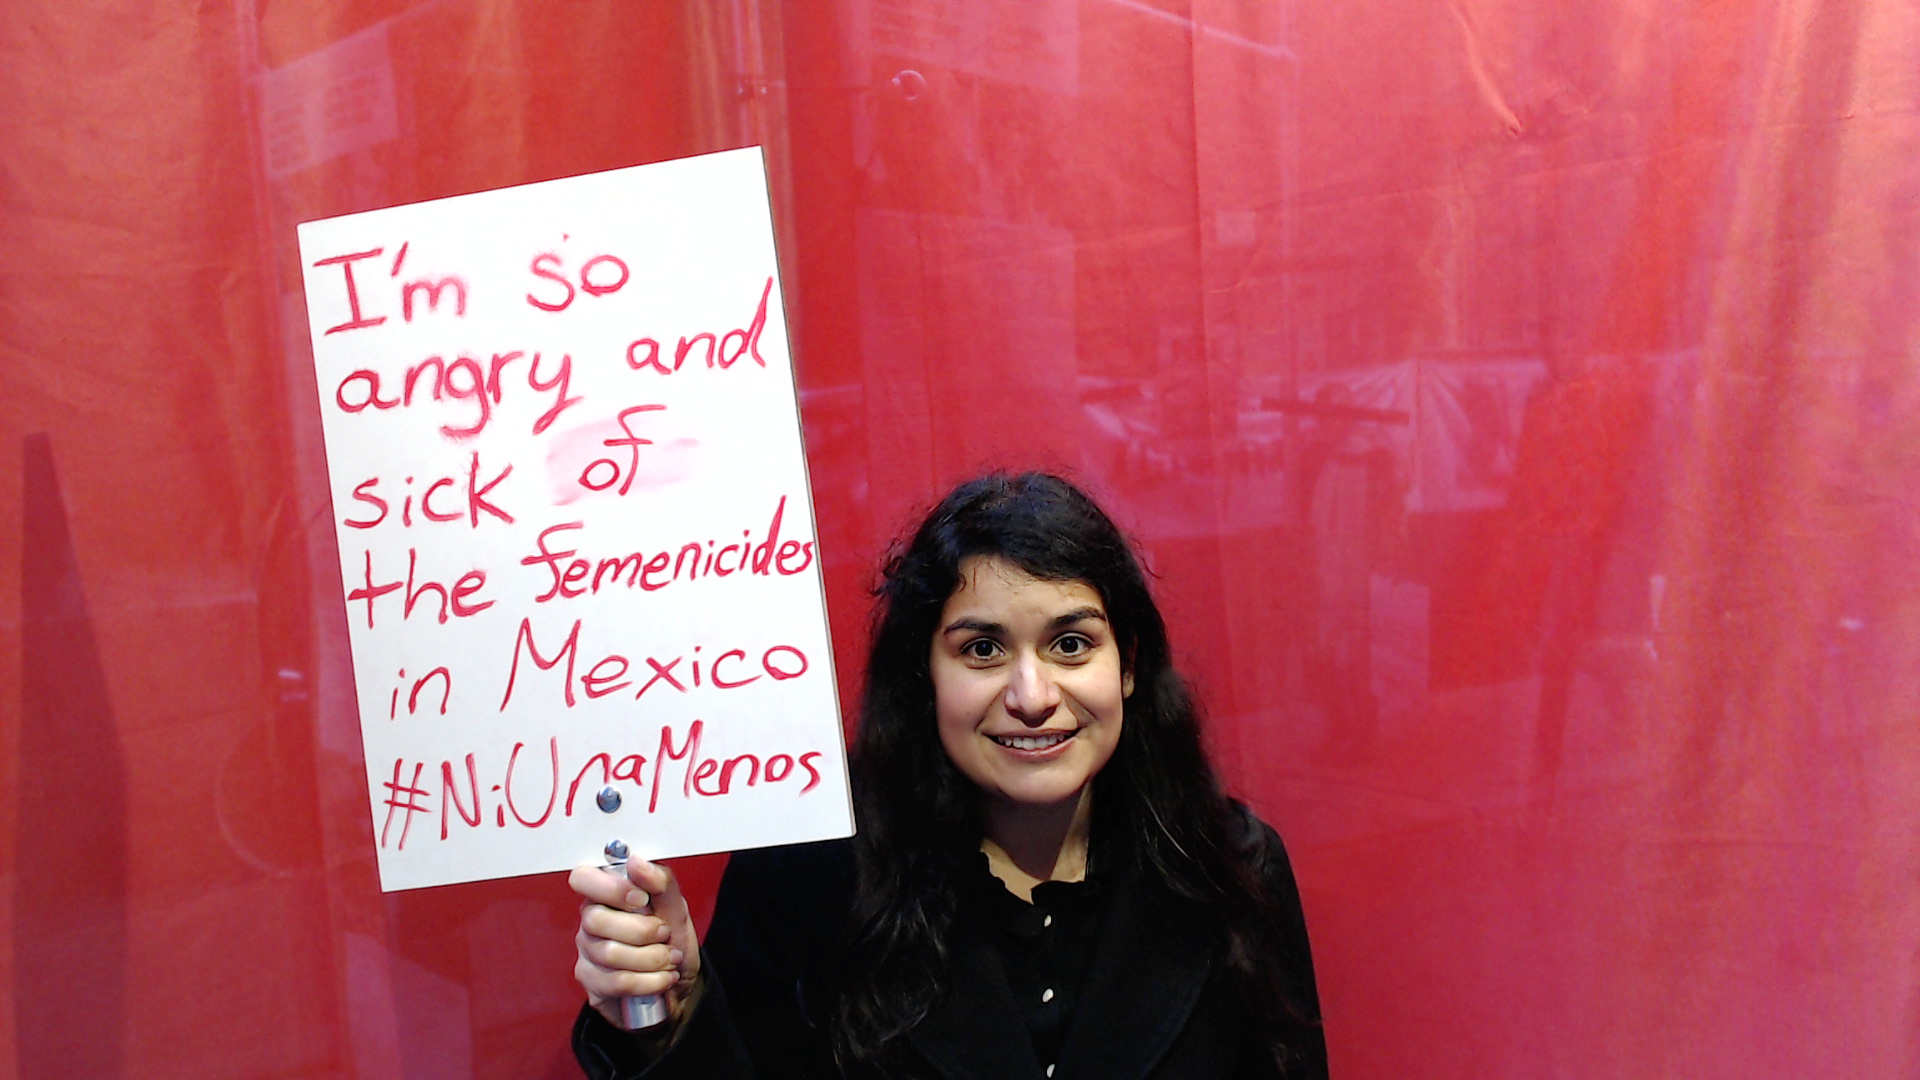 I'm so
angry and
sick of
the femenicides
in Mexico
#NiUnaMenos